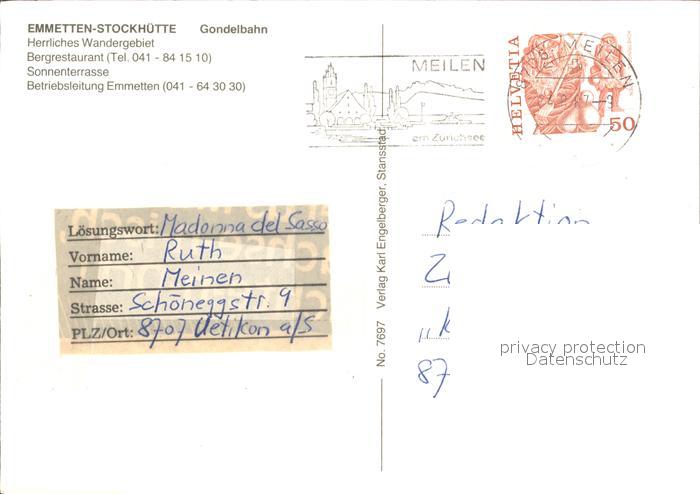 EMMETTEN-STOCKHÜTTE Gondelbahn
Herrliches Wandergebiet
Bergrestaurant (Tel. 041 - 84 15 10)
Sonnenterrasse
Betriebsleitung Emmetten (041 - 64 30 30)
MEILEN
am Zürichsee
8706 MEILEN
HELVETIA
50
Lösungswort: Madonna del Sasso
Vorname: Ruth
Name: Meinen
Strasse: Schöneggstr. 9
PLZ/Ort: 8707 Uetikon a/S
No. 7697 Verlag Karl Engelberger, Stansstad
Redaktion
87
privacy protection
Datenschutz